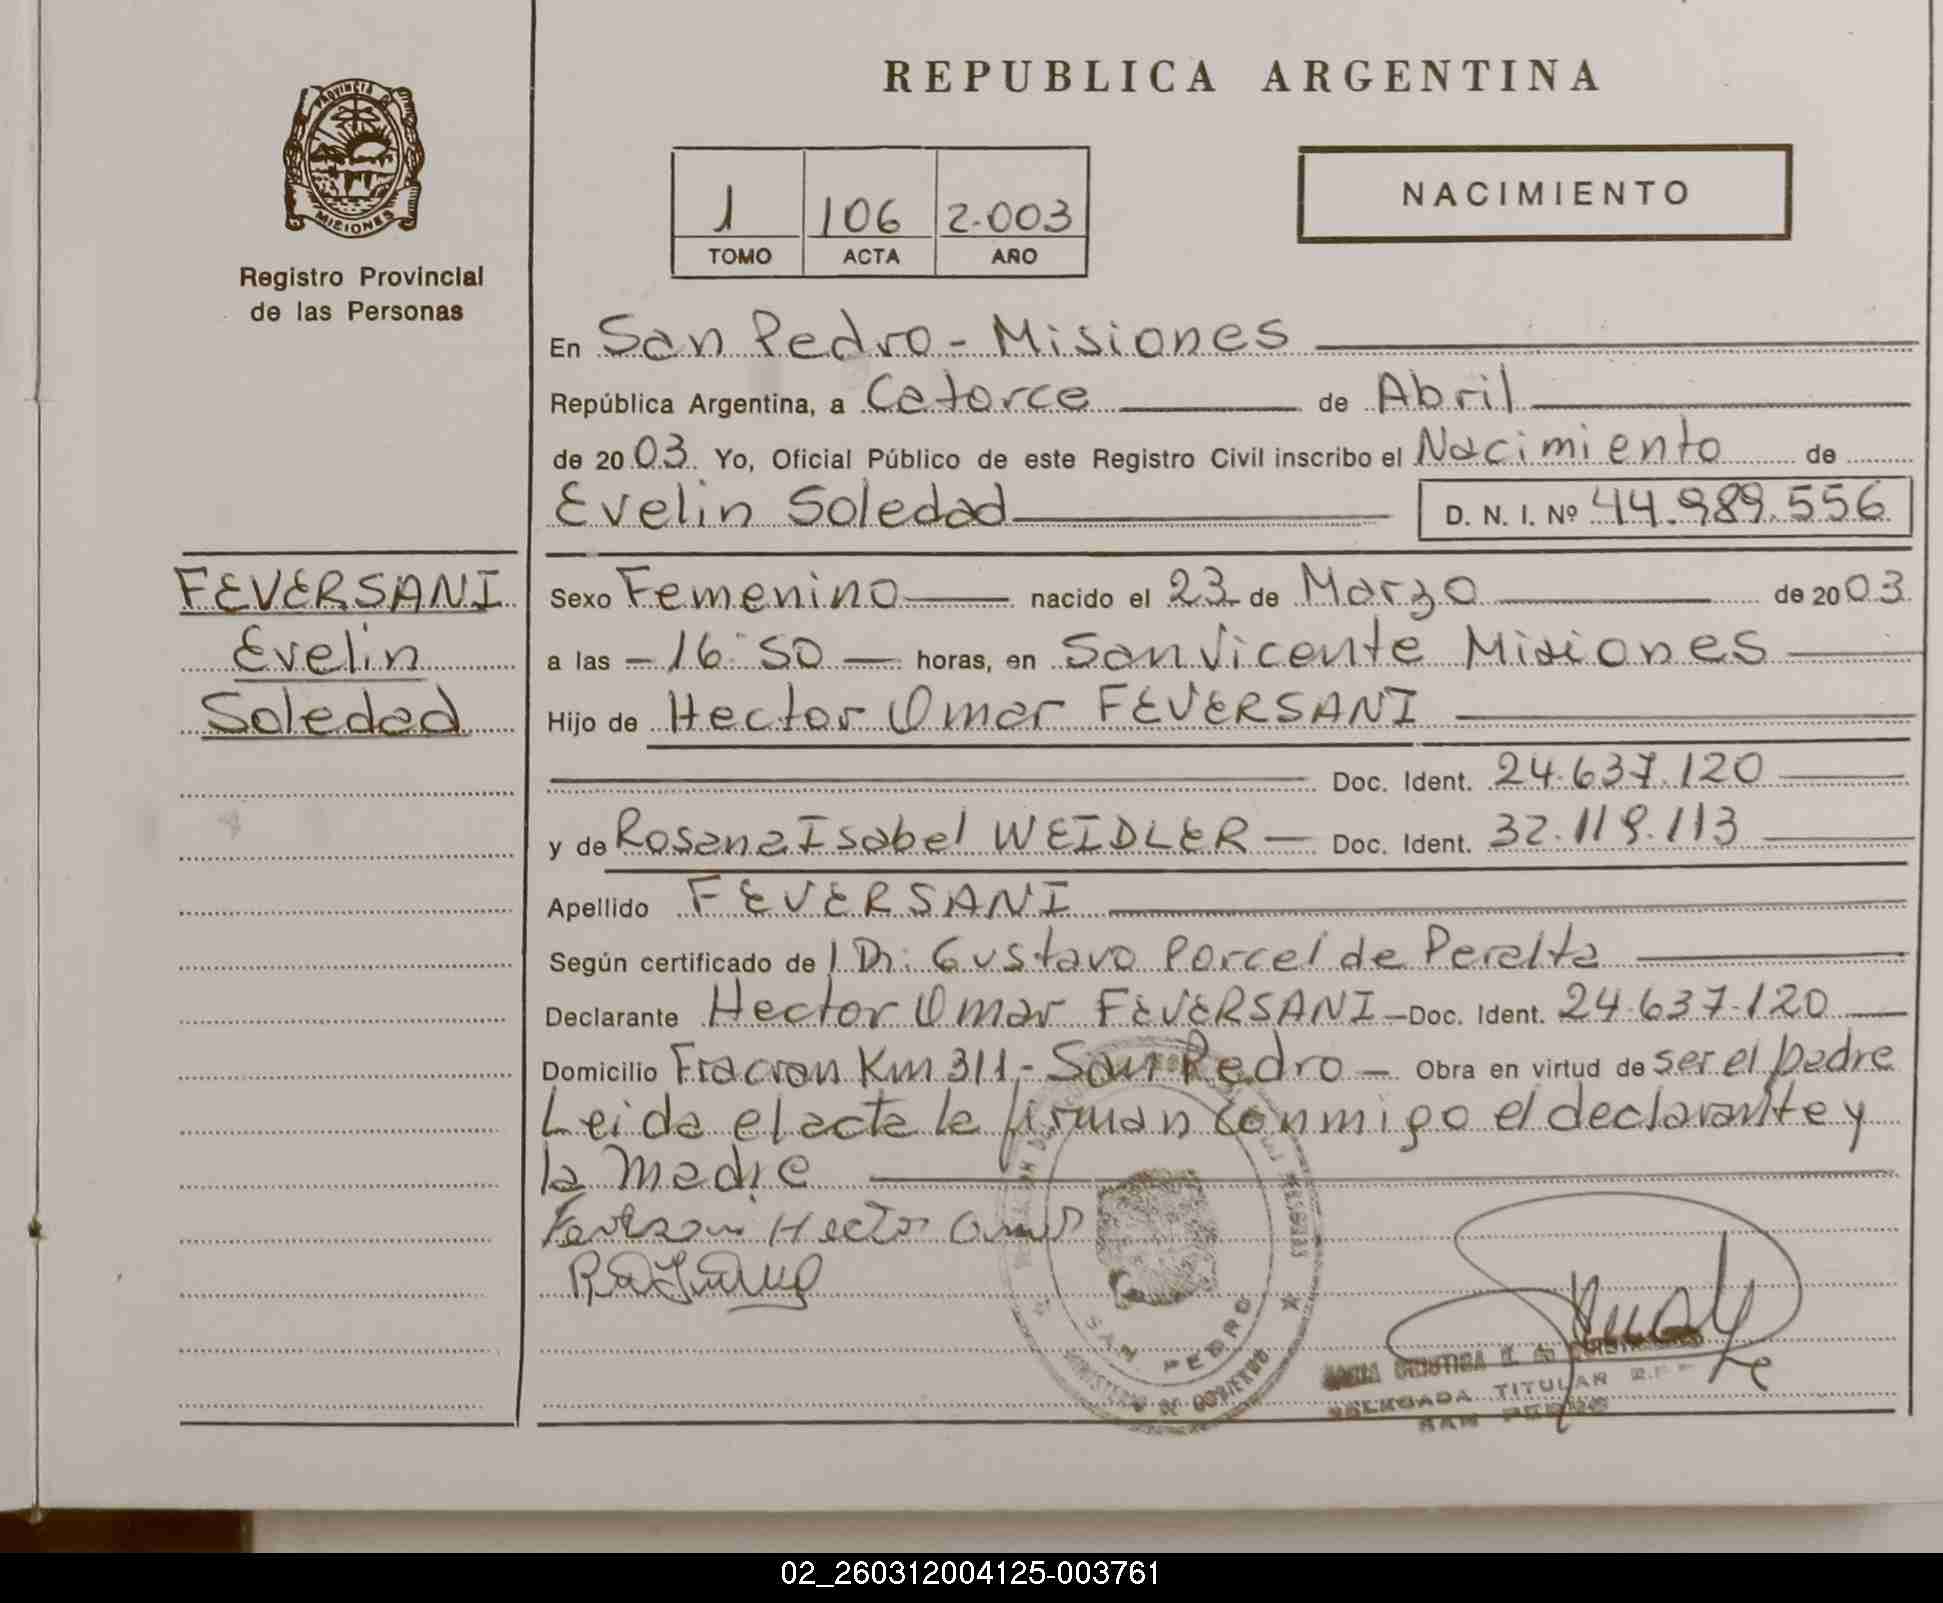 PROVINCIA DE
MISIONES
Registro Provincial
de las Personas
REPUBLICA ARGENTINA
1 106 2.003
TOMO ACTA AÑO
NACIMIENTO
En San Pedro - Misiones
República Argentina, a Catorce de Abril
de 20 03. Yo, Oficial Público de este Registro Civil inscribo el Nacimiento de
Evelin Soledad D. N. I. Nº 44.989.556
FEVERSANI
Evelin
Soledad
Sexo Femenino nacido el 23 de Marzo de 20 03
a las - 16:50 - horas, en San Vicente Misiones
Hijo de Hector Omar FEVERSANI
Doc. Ident. 24.637.120
y de Rosana Isabel WEIDLER - Doc. Ident. 32.119.113
Apellido FEVERSANI
Según certificado de l Dr: Gustavo Porcel de Peralta
Declarante Hector Omar FEVERSANI - Doc. Ident. 24.637.120
Domicilio Fracran Km 311,- San Pedro - Obra en virtud de ser el padre
Leida el acta la firman conmigo el declarante y
la Madre
Feversani Hector Omar
SAN PEDRO
MINISTERIO DE GOBIERNO
DELEGADA TITULAR
SAN PEDRO
02_260312004125-003761